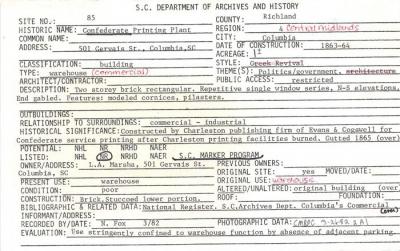 S.C. DEPARTMENT OF ARCHIVES AND HISTORY
SITE NO.: 85 COUNTY: Richland
HISTORIC NAME: Confederate Printing Plant REGION: 4 Central midlands
COMMON NAME: CITY: Columbia
ADDRESS: 501 Gervais St., Columbia, SC DATE OF CONSTRUCTION: 1863-64
ACREAGE:
CLASSIFICATION: building STYLE: Greek Revival
TYPE: warehouse (commercial) THEME(S): Politics/government, architecture
ARCHITECT/CONTRACTOR: PUBLIC ACCESS: restricted
DESCRIPTION: Two storey brick rectangular. Repetitive single window series, N-S elevations,
End gabled. Features: modeled cornices, pilasters.
OUTBUILDINGS:
RELATIONSHIP TO SURROUNDINGS: commercial - industrial
HISTORICAL SIGNIFICANCE: Constructed by Charleston publishing firm of Evans & Cogswell for
Confederate service printing after Charleston printing facilities burned. Gutted 1865 (over)
POTENTIAL: NHL NR NRHD HAER
LISTED: NHL NR NRHD HAER S.C. MARKER PROGRAM
OWNER/ADDRESS: L.A. Marsha, 501 Gervais St. PREVIOUS OWNERS:
Columbia, SC ORIGINAL SITE: yes MOVED/DATE:
ORIGINAL USE: warehouse
PRESENT USE: warehouse ALTERED/UNALTERED: original building (over)
CONDITION: poor ROOF: FOUNDATION:
CONSTRUCTION: Brick. Stuccoed lower portion.
BIBLIOGRAPHIC & RELATED DATA: National Register, S.C. Archives Dept. Columbia's Commercial (over)
INFORMANT/ADDRESS:
RECORDED BY/DATE: N. Fox 3/82 PHOTOGRAPHIC DATA:
EVALUATION: Use stringently confined to warehouse function by absence of adjacent parking.